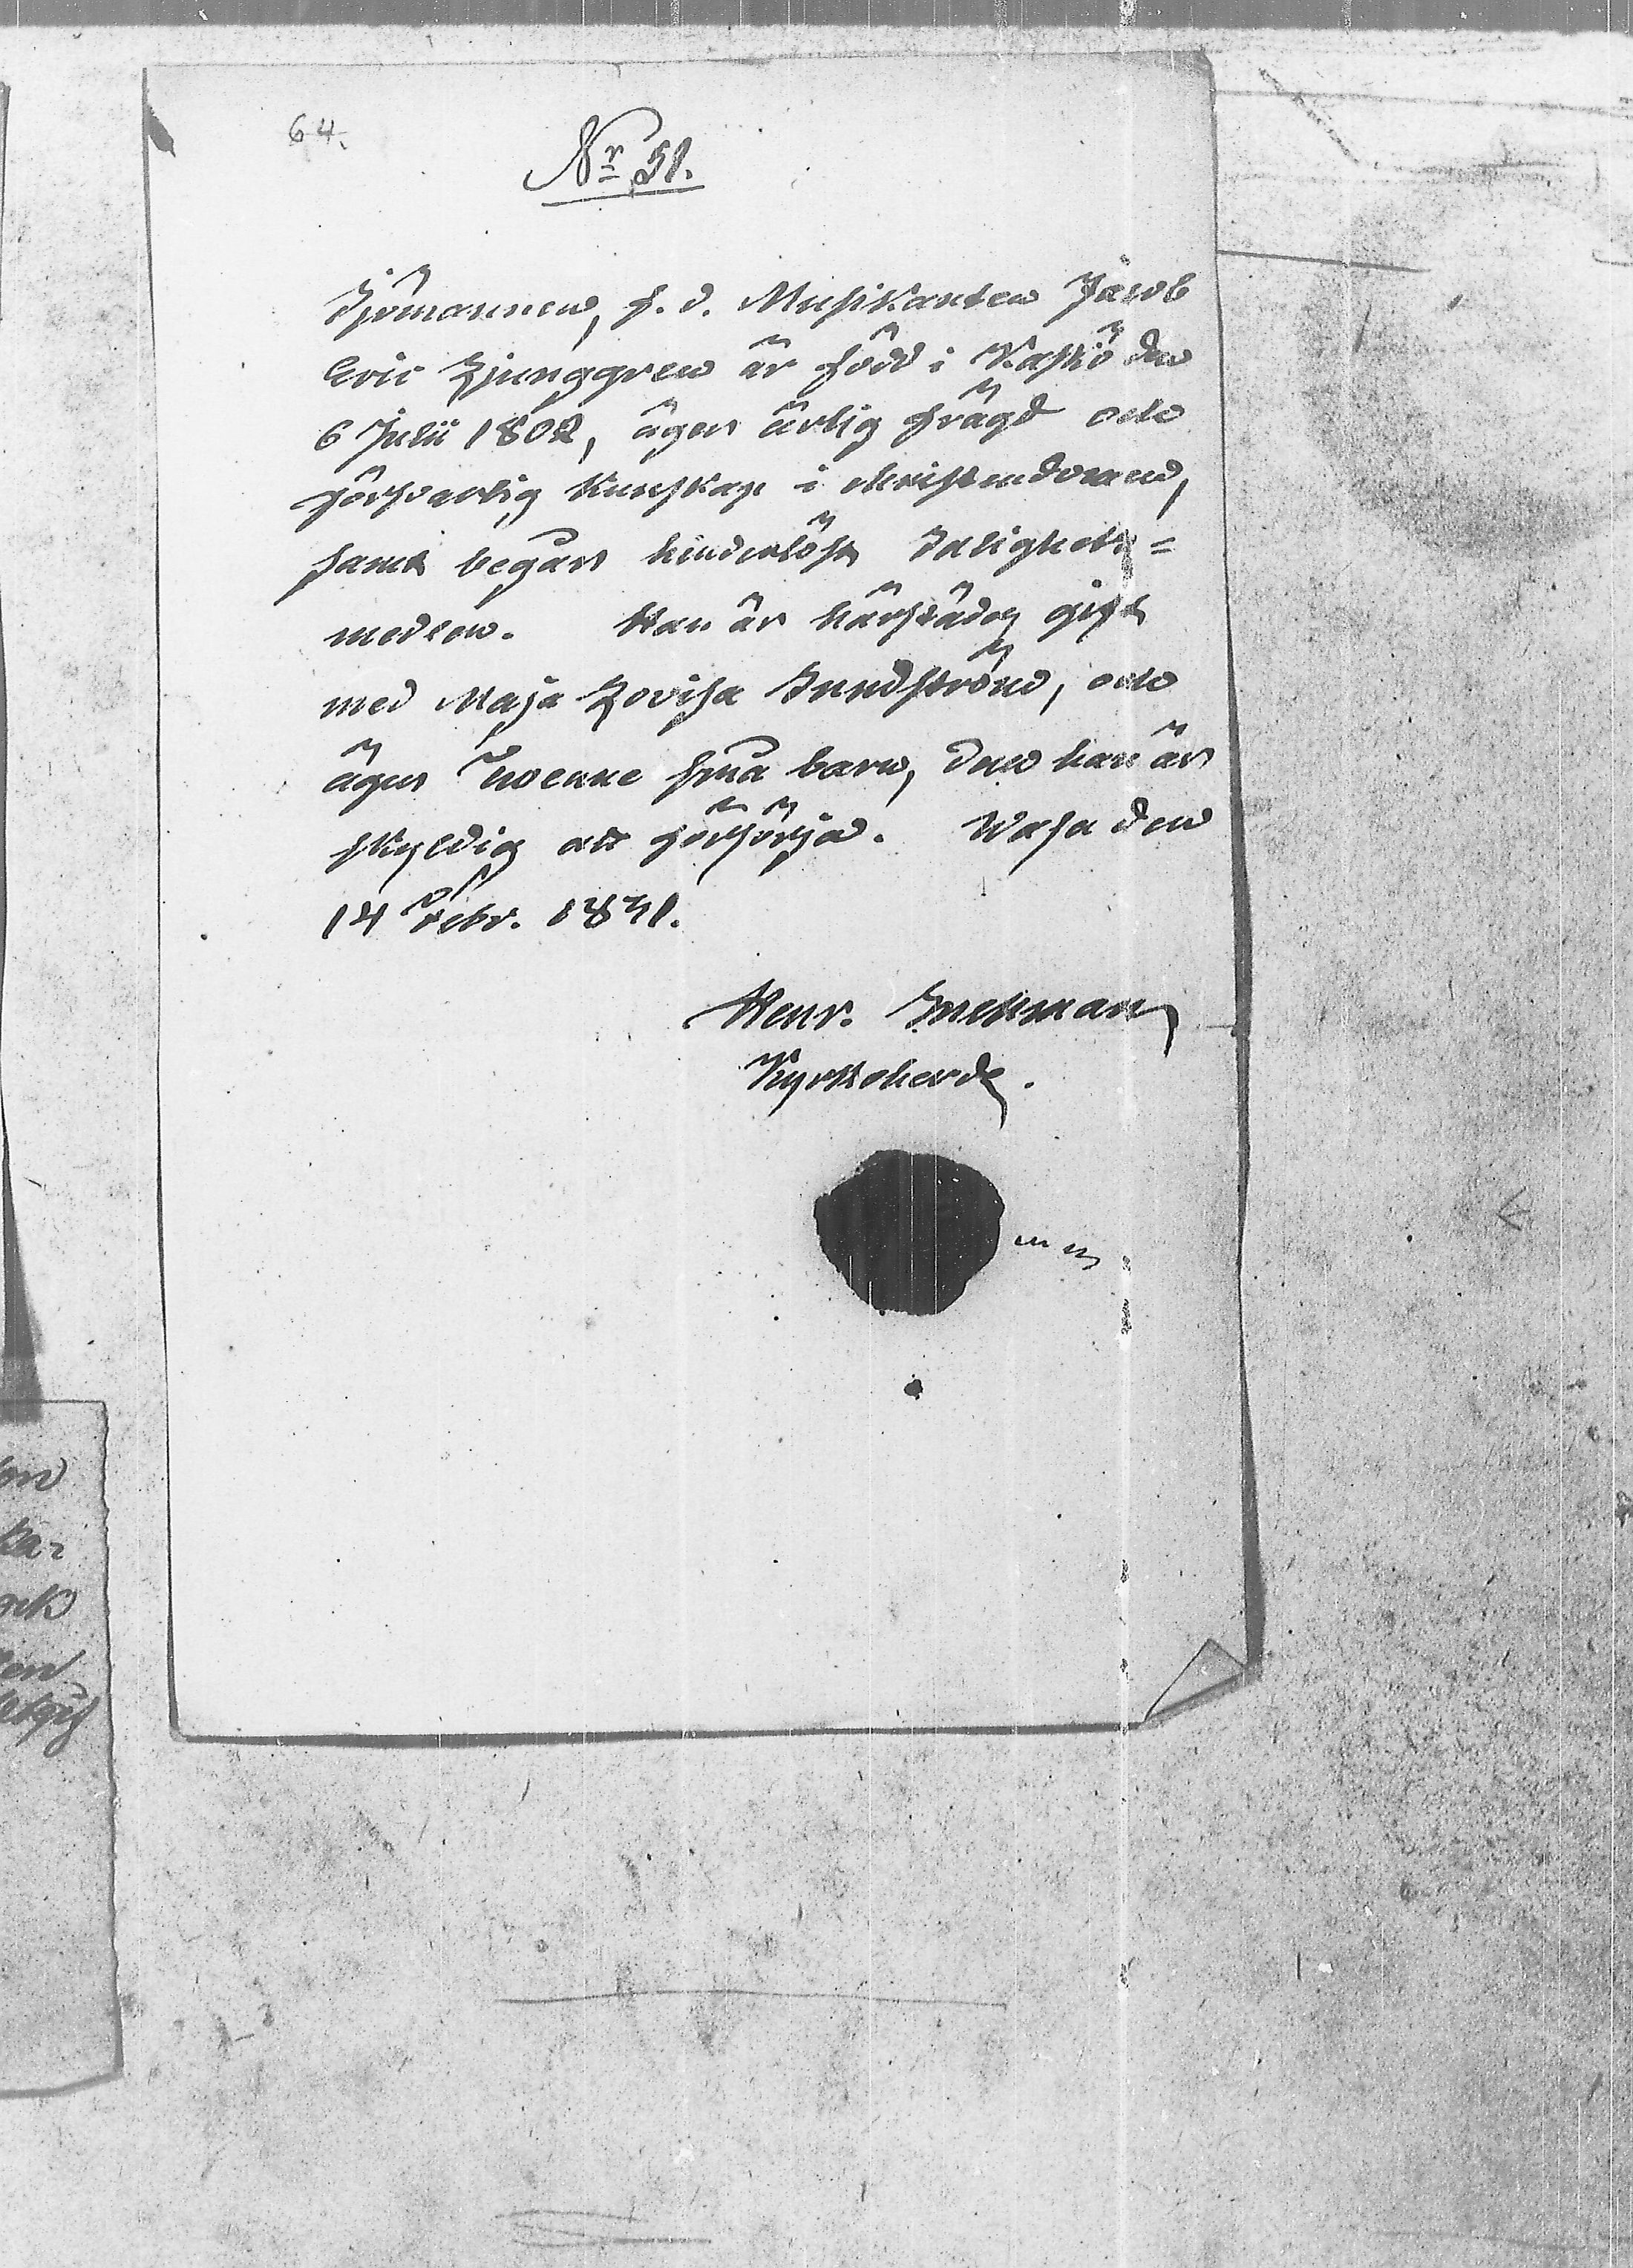 64.
Nr 51.
Sjömannen, f. d. Musikanten Jacob
Eric Ljunggren är född i Kaskö den
6 Julii 1802, äger ärlig frägd och
försvarlig kunskap i christendomen,
samt begår hinderlöst Salighets=
medlen. Han är härstädes gift
med Maja Lovisa Sundström, och
äger Tvenne små barn, dem han är
skyldig att försörja. Wasa den
14 Febr. 1831.
Henr.
Kyrkoherde.